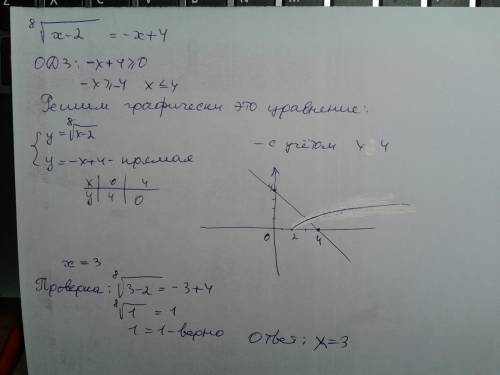 ⁸√(x-2) = -x+4
ОДЗ: -x+4≥0
-x≥-4 x≤4
Решим графически это уравнение:
{ y=⁸√(x-2)
y=-x+4 - прямая
- с учётом x 4
x | 0 | 4
y | 4 | 0
0 2 4
x=3
Проверка: ⁸√(3-2) = -3+4
⁸√1 = 1
1=1-верно
Ответ: x=3